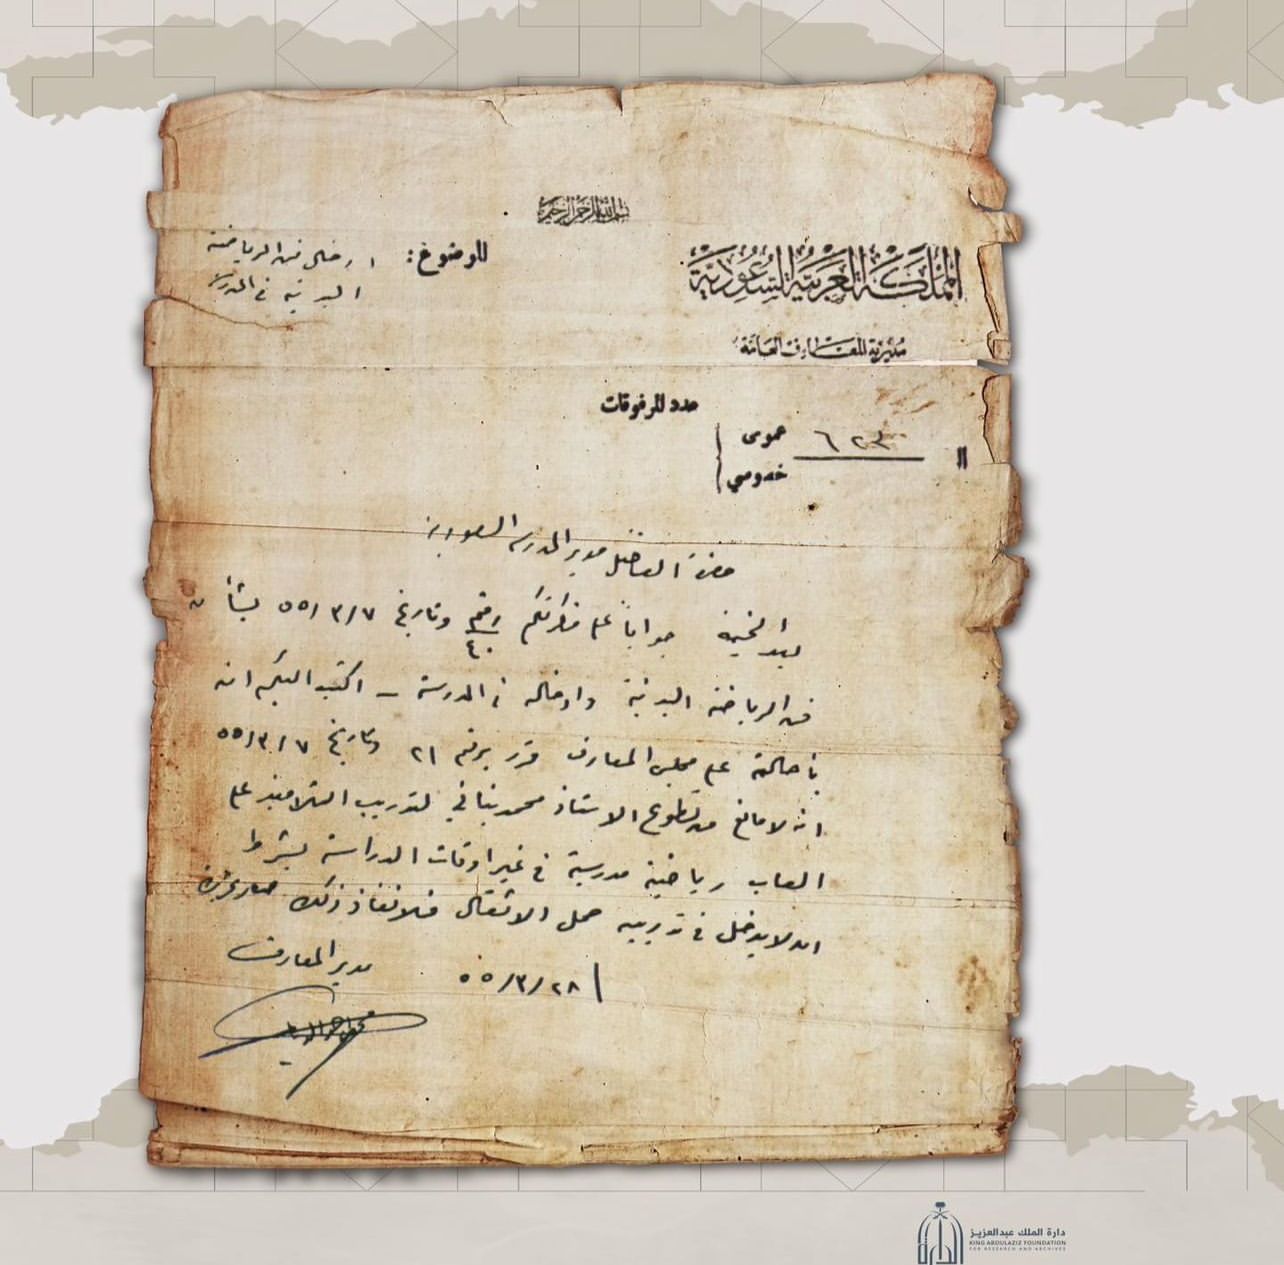 بسم الله الرحمن الرحيم
المملكة العربية السعودية
مديرية المعارف العامة
الموضوع: ادخال فن الرياضة
البدنية في المدرسة
عدد المرفوقات
عمومي
خصوصي
حضرة الفاضل مدير المدرسة السعودية
بعد التحية جواباً على مذكرتكم رقم ٤٠ وتاريخ ٥٥/٣/٧ بشأن
فن الرياضة البدنية وادخاله في المدرسة – اكتب اليكم انه
باحالته على مجلس المعارف قرر برقم ٢١ وتاريخ ٥٥/٣/٧
انه لا مانع من تطوع الاستاذ محمد بناني لتدريب التلاميذ على
العاب رياضية مدرسية في غير اوقات الدراسة بشرط
ان لا يدخل في تدريبه حمل الاثقال فلانفاذ ذلك صار تحريره
٥٥/٣/٢٨
مدير المعارف
دارة الملك عبدالعزيز
KING ABDULAZIZ FOUNDATION
FOR RESEARCH AND ARCHIVES